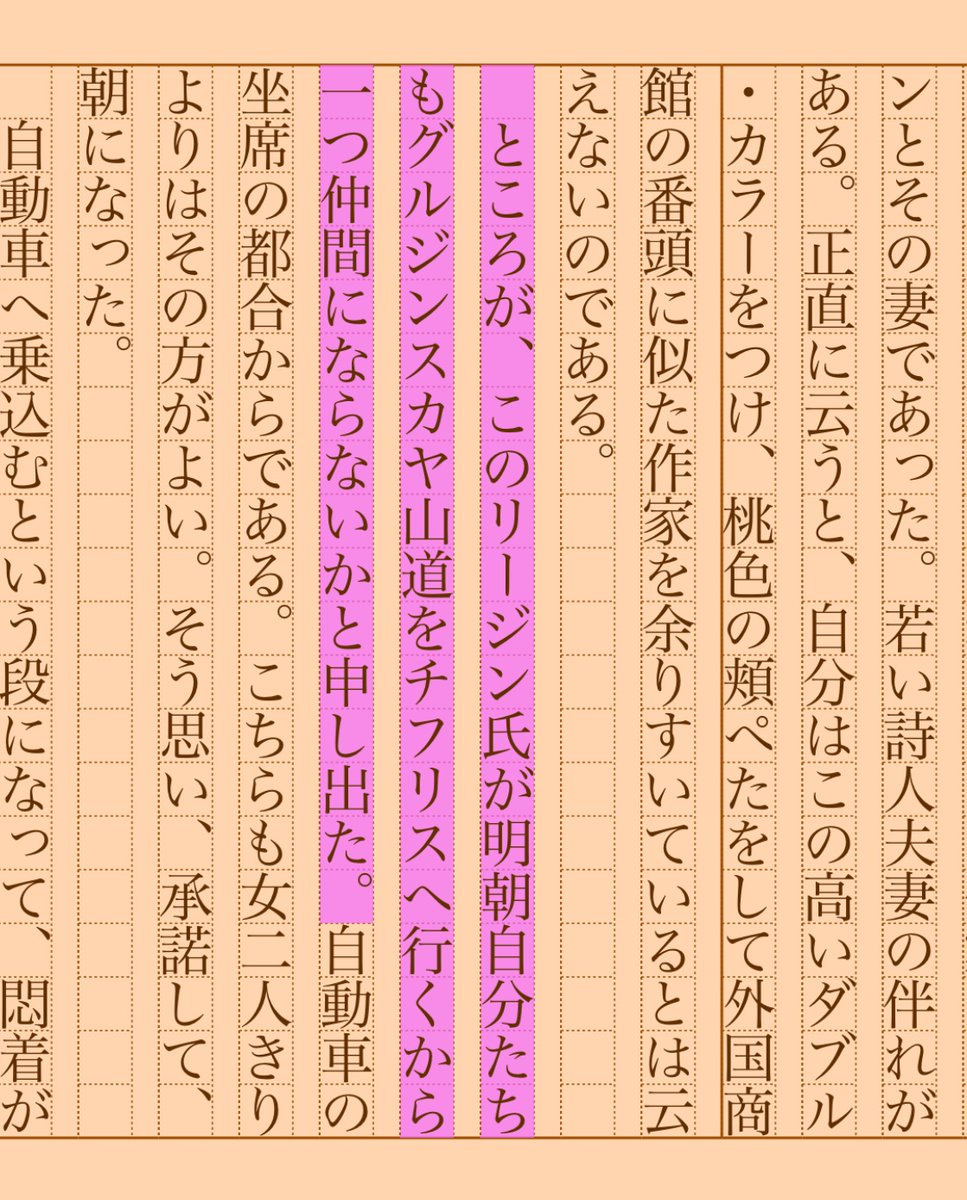 ンとその妻であった。若い詩人夫妻の伴れが
ある。正直に云うと、自分はこの高いダブル
・カラーをつけ、桃色の頬ぺたをして外国商
館の番頭に似た作家を余りすいているとは云
えないのである。
　ところが、このリージン氏が明朝自分たち
もグルジンスカヤ山道をチフリスへ行くから
一つ仲間にならないかと申し出た。自動車の
坐席の都合からである。こちらも女二人きり
よりはその方がよい。そう思い、承諾して、
朝になった。
　自動車へ乗込むという段になって、悶着が